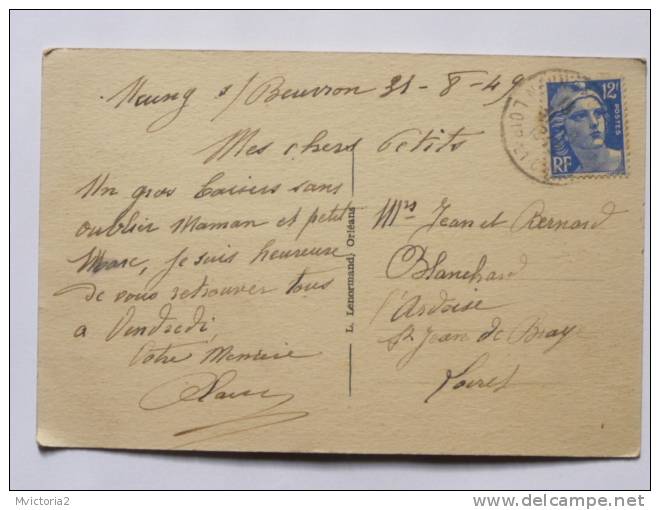 Neung s/ Beuvron 31-8-49
Mes chers Petits
Un gros baisers sans
oublier Maman et petit
Marc, je suis heureuse
de vous retrouver tous
a Vendredi,
Votre
L. Lenormand, Orléans
Mrs Jean et Bernard
Blanchard
l'Ardoise
St Jean de Braye
Loiret
12F
POSTES
RF
Mvictoria2
delcampe.net